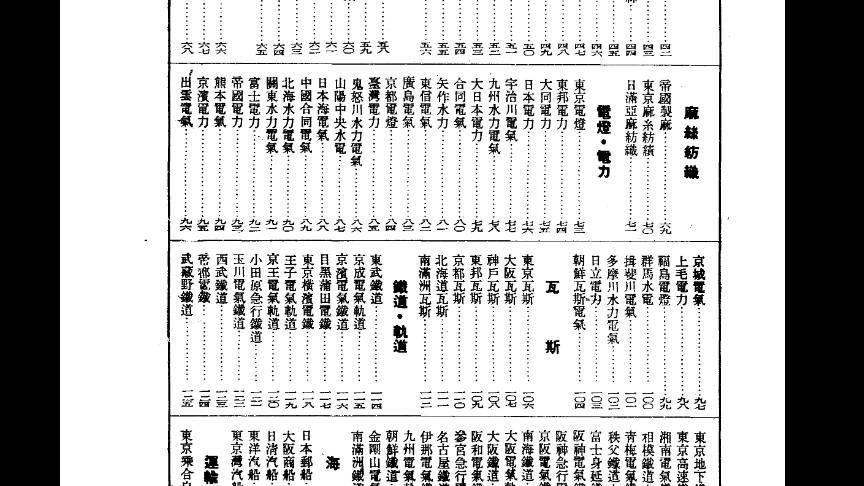 麻絲紡織
帝國製麻……六九
東京麻糸紡績……七〇
日滿亞麻紡織……七一
電燈・電力
東京電燈……七三
東邦電力……七四
大同電力……七五
日本電力……七六
宇治川電氣……七七
九州水力電氣……七八
大日本電力……七九
合同電氣……八〇
矢作水力……八一
東信電氣……八二
廣島電氣……八三
京都電燈……八四
臺灣電力……八五
鬼怒川水力電氣……八六
山陽中央水電……八七
日本海電氣……八八
中國合同電氣……八九
北海水力電氣……九〇
關東水力電氣……九一
富士電力……九二
帝國電力……九三
熊本電氣……九四
京濱電力……九五
出雲電氣……九六
京城電氣……九七
上毛電力……九八
福島電燈……九九
群馬水電……一〇〇
揖斐川電氣……一〇一
多摩川水力電氣……一〇二
日立電力……一〇三
朝鮮瓦斯電氣……一〇四
瓦斯
東京瓦斯……一〇六
大阪瓦斯……一〇七
神戶瓦斯……一〇八
東邦瓦斯……一〇九
京都瓦斯……一一〇
北海道瓦斯……一一一
南滿洲瓦斯……一一二
鐵道・軌道
東武鐵道……一一四
京成電氣軌道……一一五
京濱電氣鐵道……一一六
目黑蒲田電鐵……一一七
東京橫濱電鐵……一一八
王子電氣軌道……一一九
京王電氣軌道……一二〇
小田原急行鐵道……一二一
玉川電氣鐵道……一二二
西武鐵道……一二三
帝都電鐵……一二四
武藏野鐵道……一二五
東京地下
東京高速
湘南電氣
相模鐵道
靑梅電氣
秩父鐵道
富士身延
阪神電氣
阪神急行
京阪電氣
南海鐵道
大阪電氣
大阪鐵道
阪和電氣
參宮急行
名古屋鐵
伊那電氣
九州電氣
朝鮮鐵道
金剛山電
南滿洲鐵
海
日本郵船
大阪商船
日淸汽船
東洋汽船
東京灣汽
運輸
東京乘合